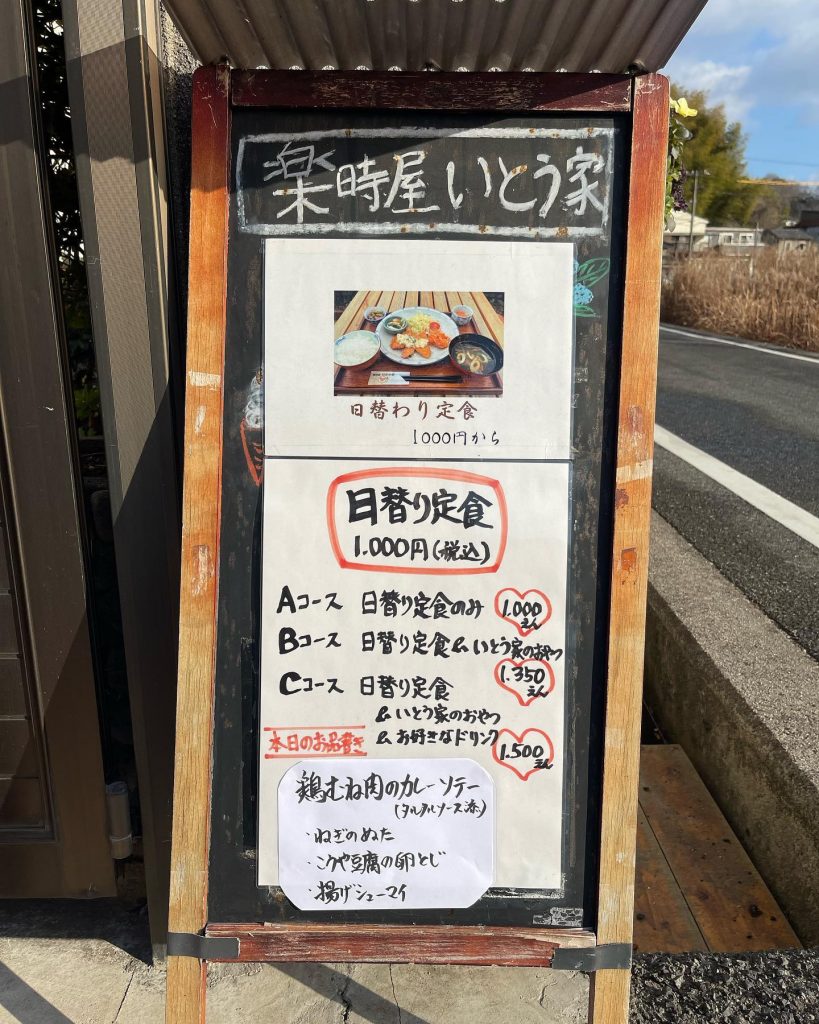 楽時屋いとう家
日替わり定食
1000円から
日替り定食
1.000円(税込)
Aコース 日替り定食のみ 1.000えん
Bコース 日替り定食&いとう家のおやつ
1.350えん
Cコース 日替り定食
&いとう家のおやつ
&お好きなドリンク 1.500えん
本日のお品書き
鶏むね肉のカレーソテー
(タルタルソース添)
・ねぎのぬた
・こうや豆腐の卵とじ
・揚げシューマイ